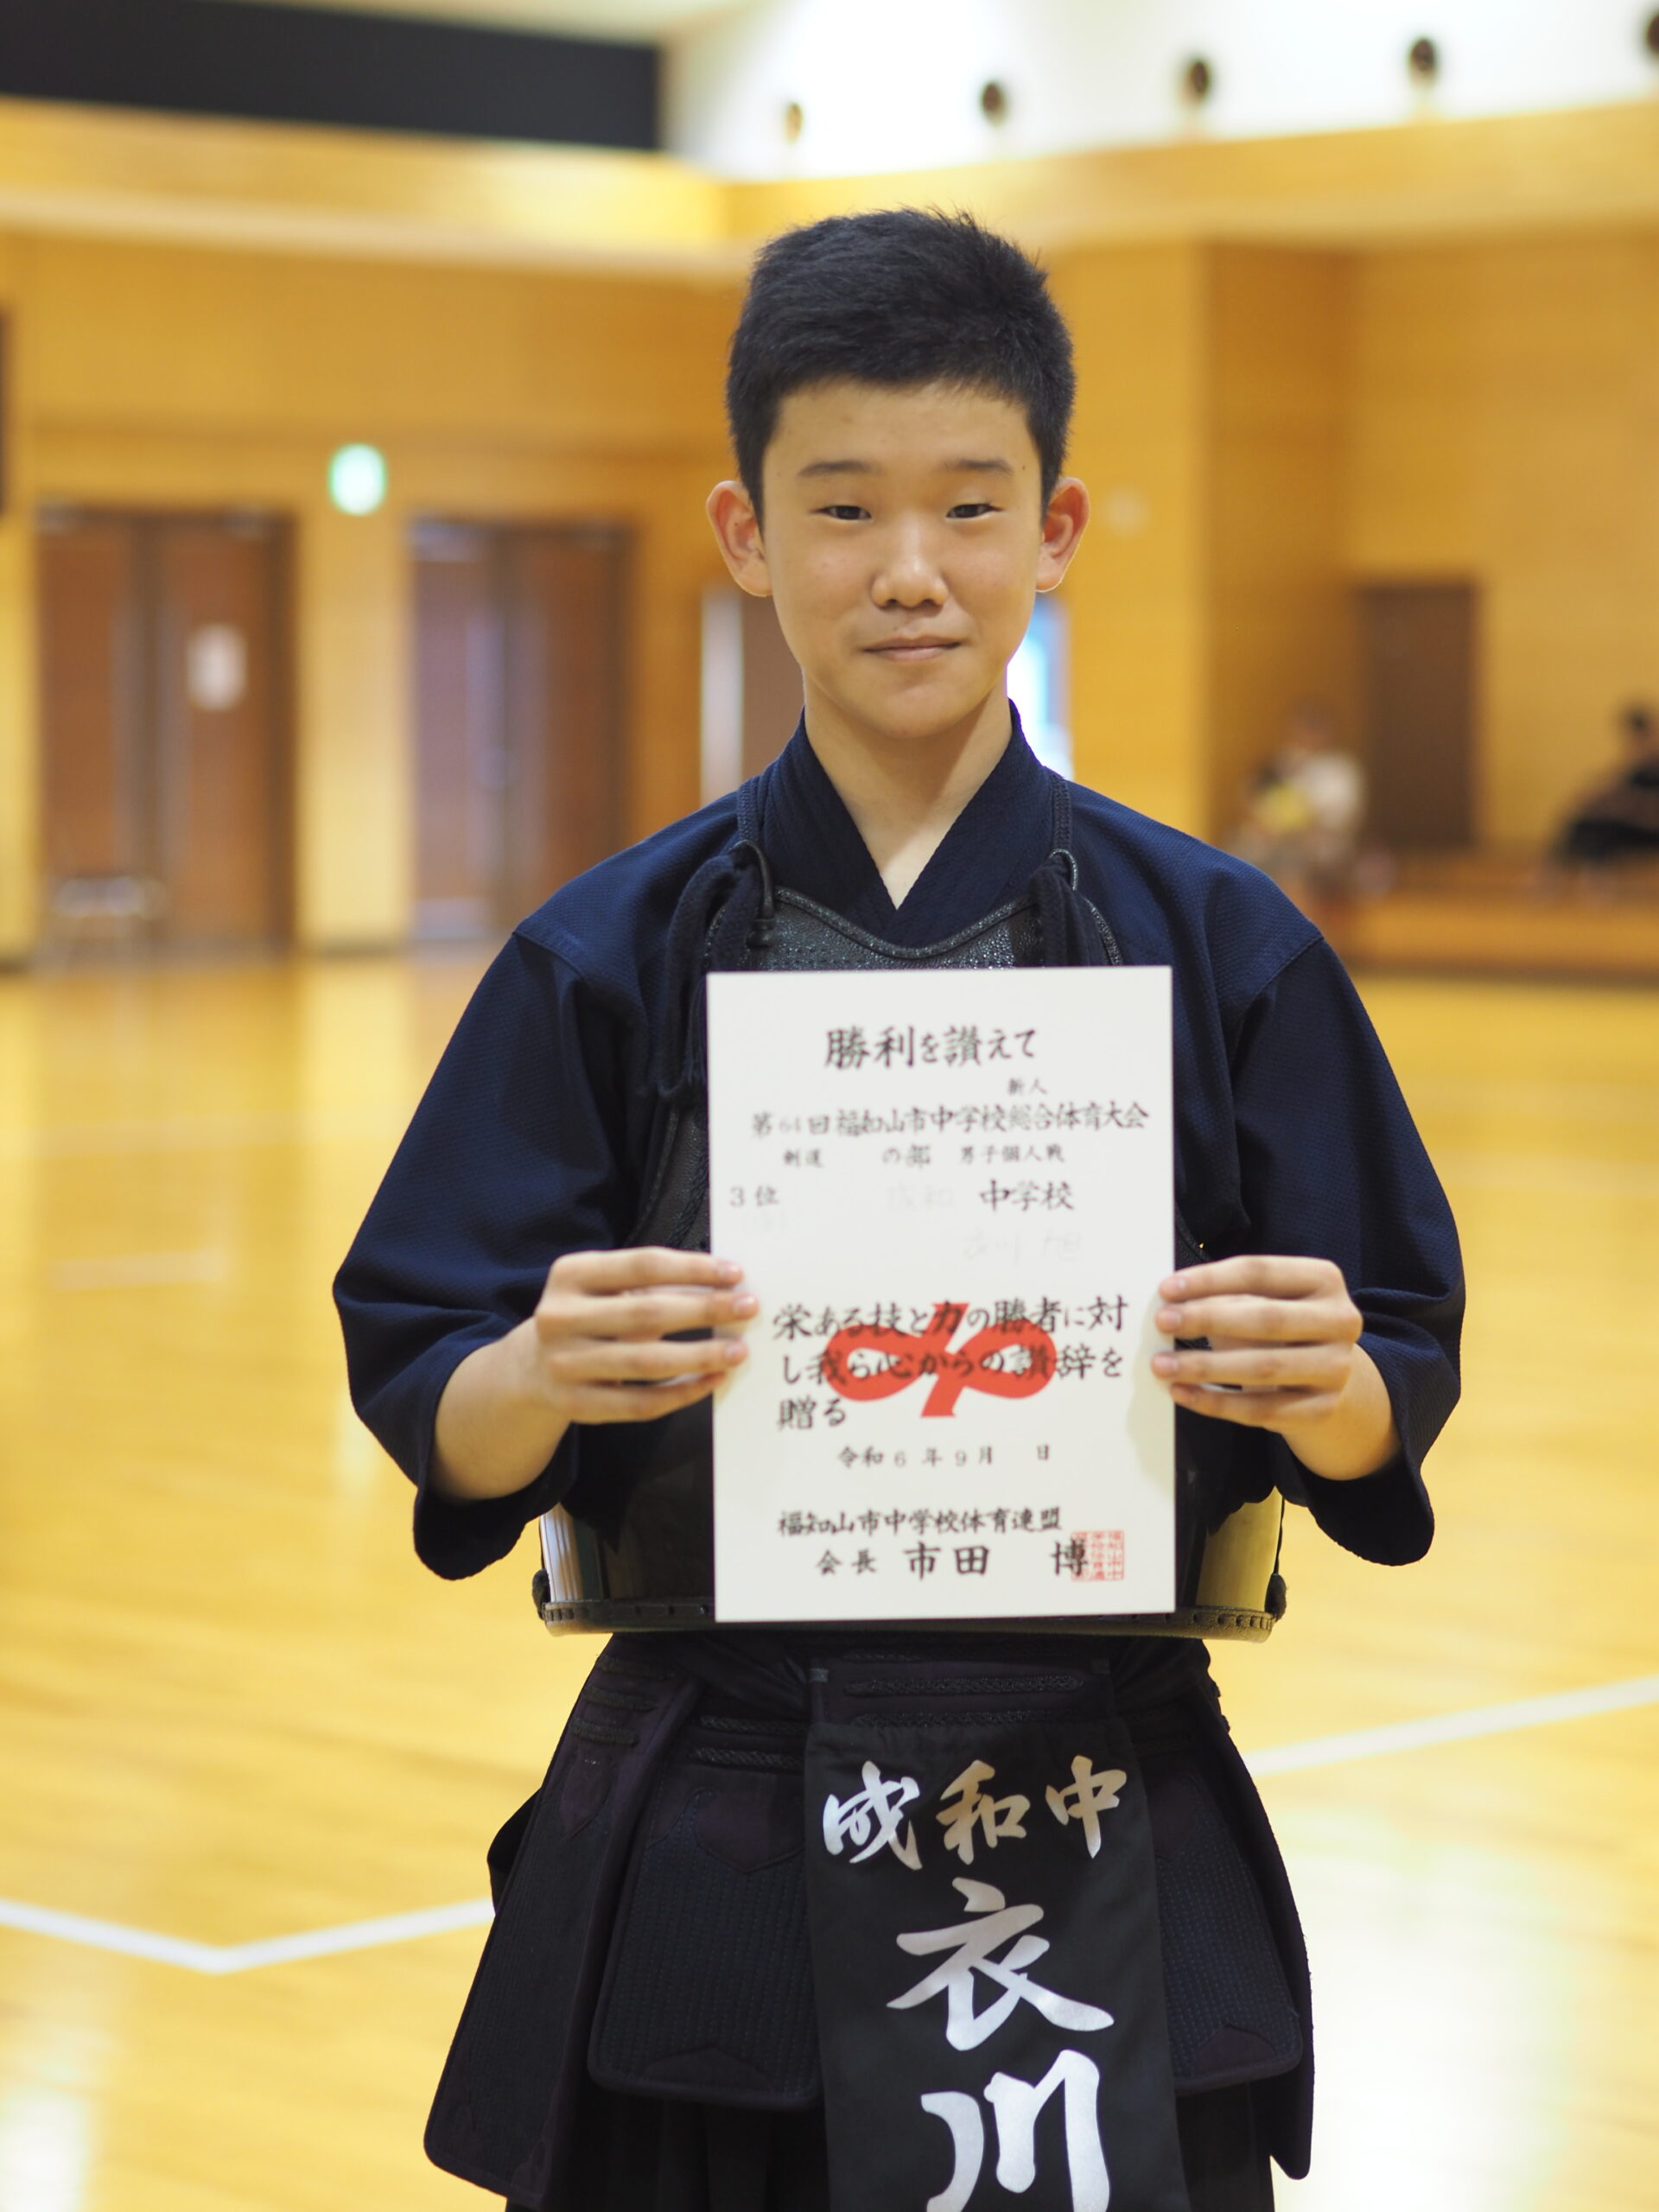 勝利を讃えて
新人
第64回福知山市中学校総合体育大会
剣道 の部 男子個人戦
3位 成和 中学校
衣川 旭
栄ある技と力の勝者に対
し我ら心からの讃辞を
贈る
令和6年9月 日
福知山市中学校体育連盟
会長 市田 博
成和中
衣川